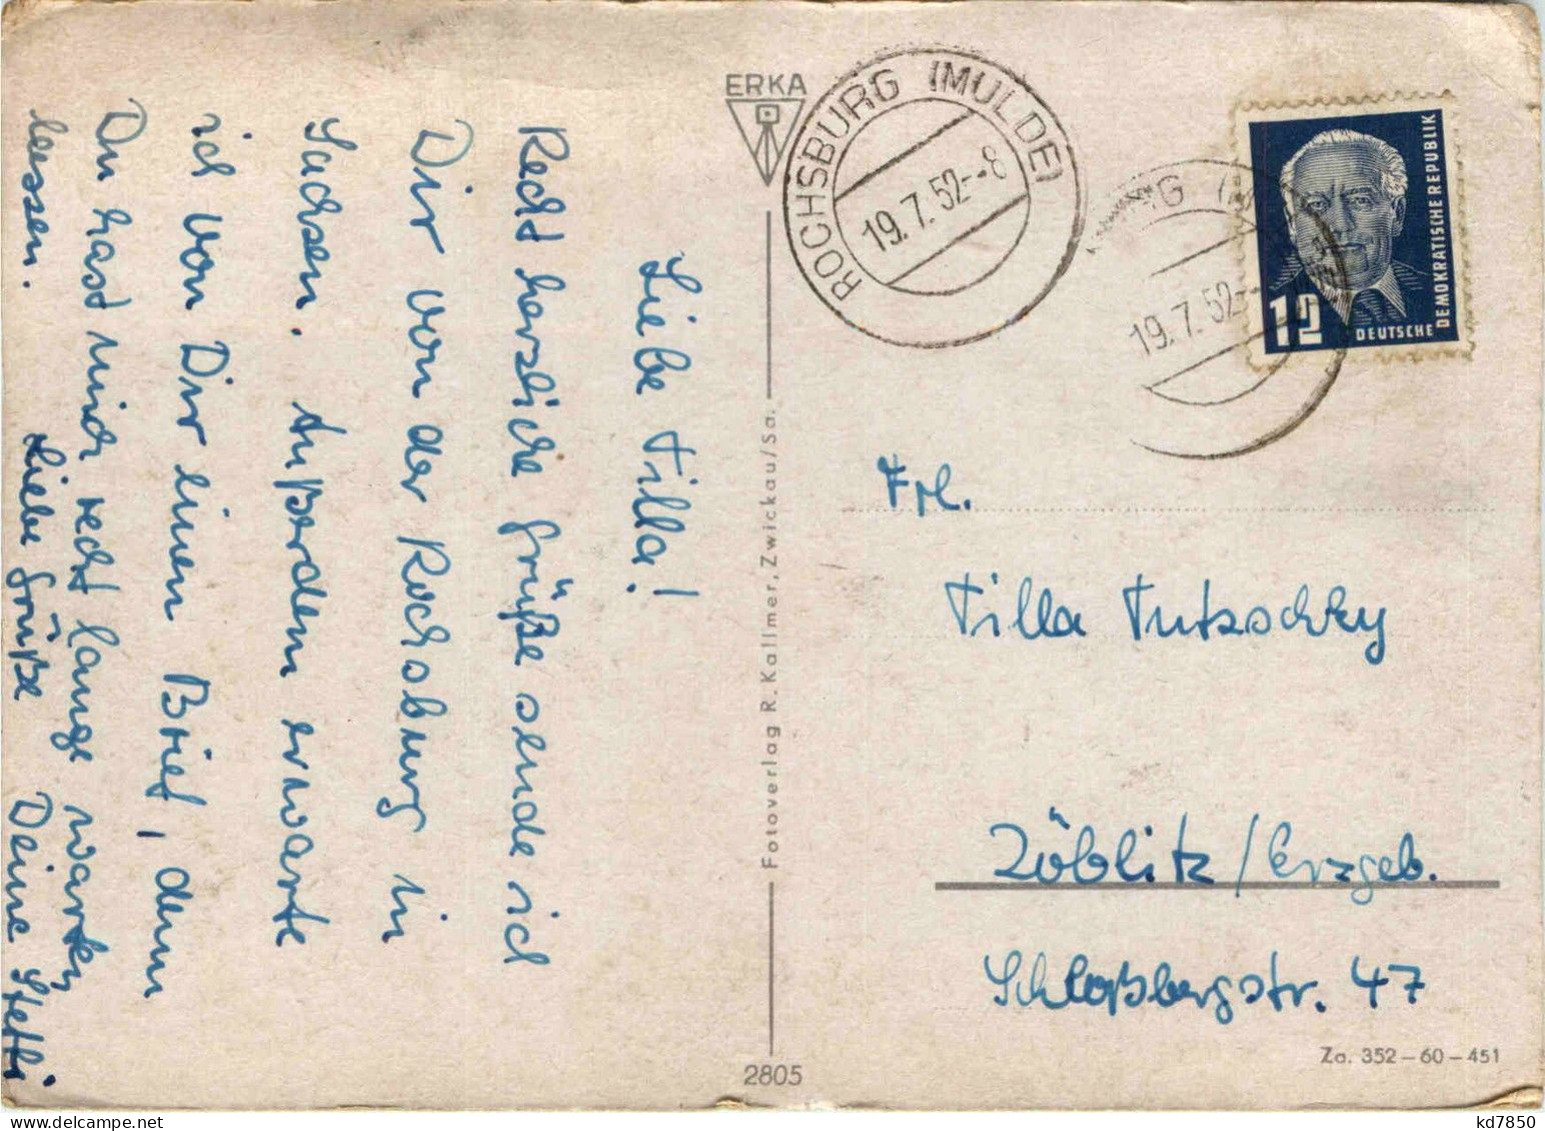 Liebe Tilla!
Recht herzliche Grüße sende ich
Dir von der Rochsburg in
Sachsen. Außerdem erwarte
ich von Dir einen Brief, denn
Du hast mich recht lange warten
lassen.
Liebe Grüße Deine Steffi
ERKA
Fotoverlag R. Kallmer, Zwickau/Sa.
2805
ROCHSBURG (MULDE)
19.7.52-8
19.7.52
12
DEUTSCHE
DEMOKRATISCHE REPUBLIK
Frl.
Tilla Tutzschky
Zöblitz/Erzgeb.
Schloßbergstr. 47
Za. 352-60-451
kd7850